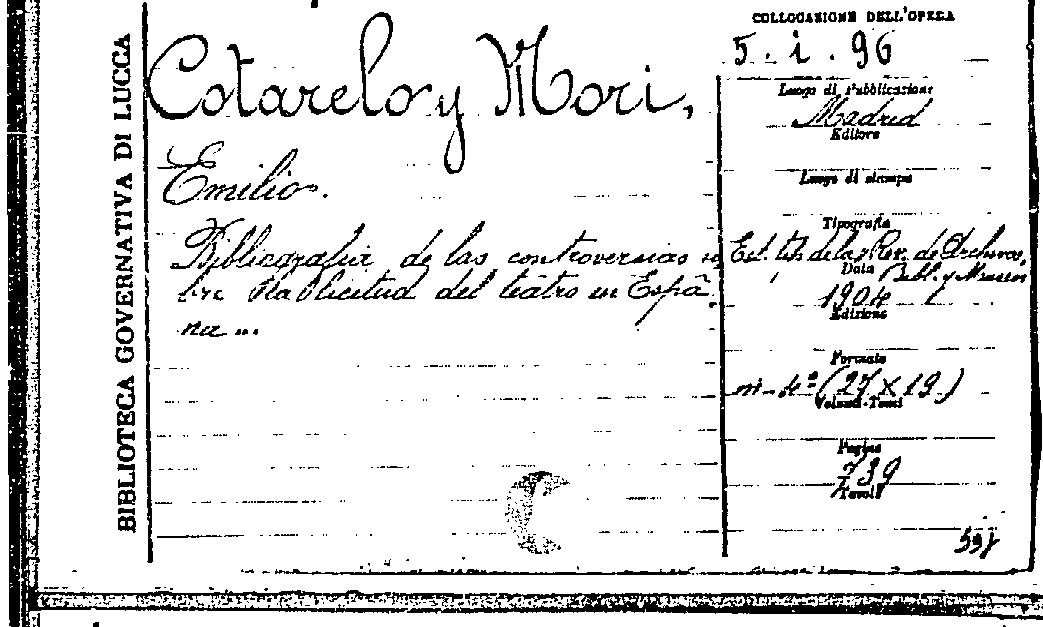 BIBLIOTECA GOVERNATIVA DI LUCCA
Cotarelo y Mori,
Emilio.
Bibliografia de las controversias
licitud del teatro en Espa
na ...
COLLOCAZIONE DELL'OPERA
5. i. 96
Luogo di Pubblicazione
Madrid
Editore
Luogo di stampa
Tipografia
Est. tip. de la Rev. de Archivos,
Data Bibl. y Museos
1904
Edizione
Formato
in-4º (27 X 19)
Volumi-Tomi
Pagine
739
Tavole